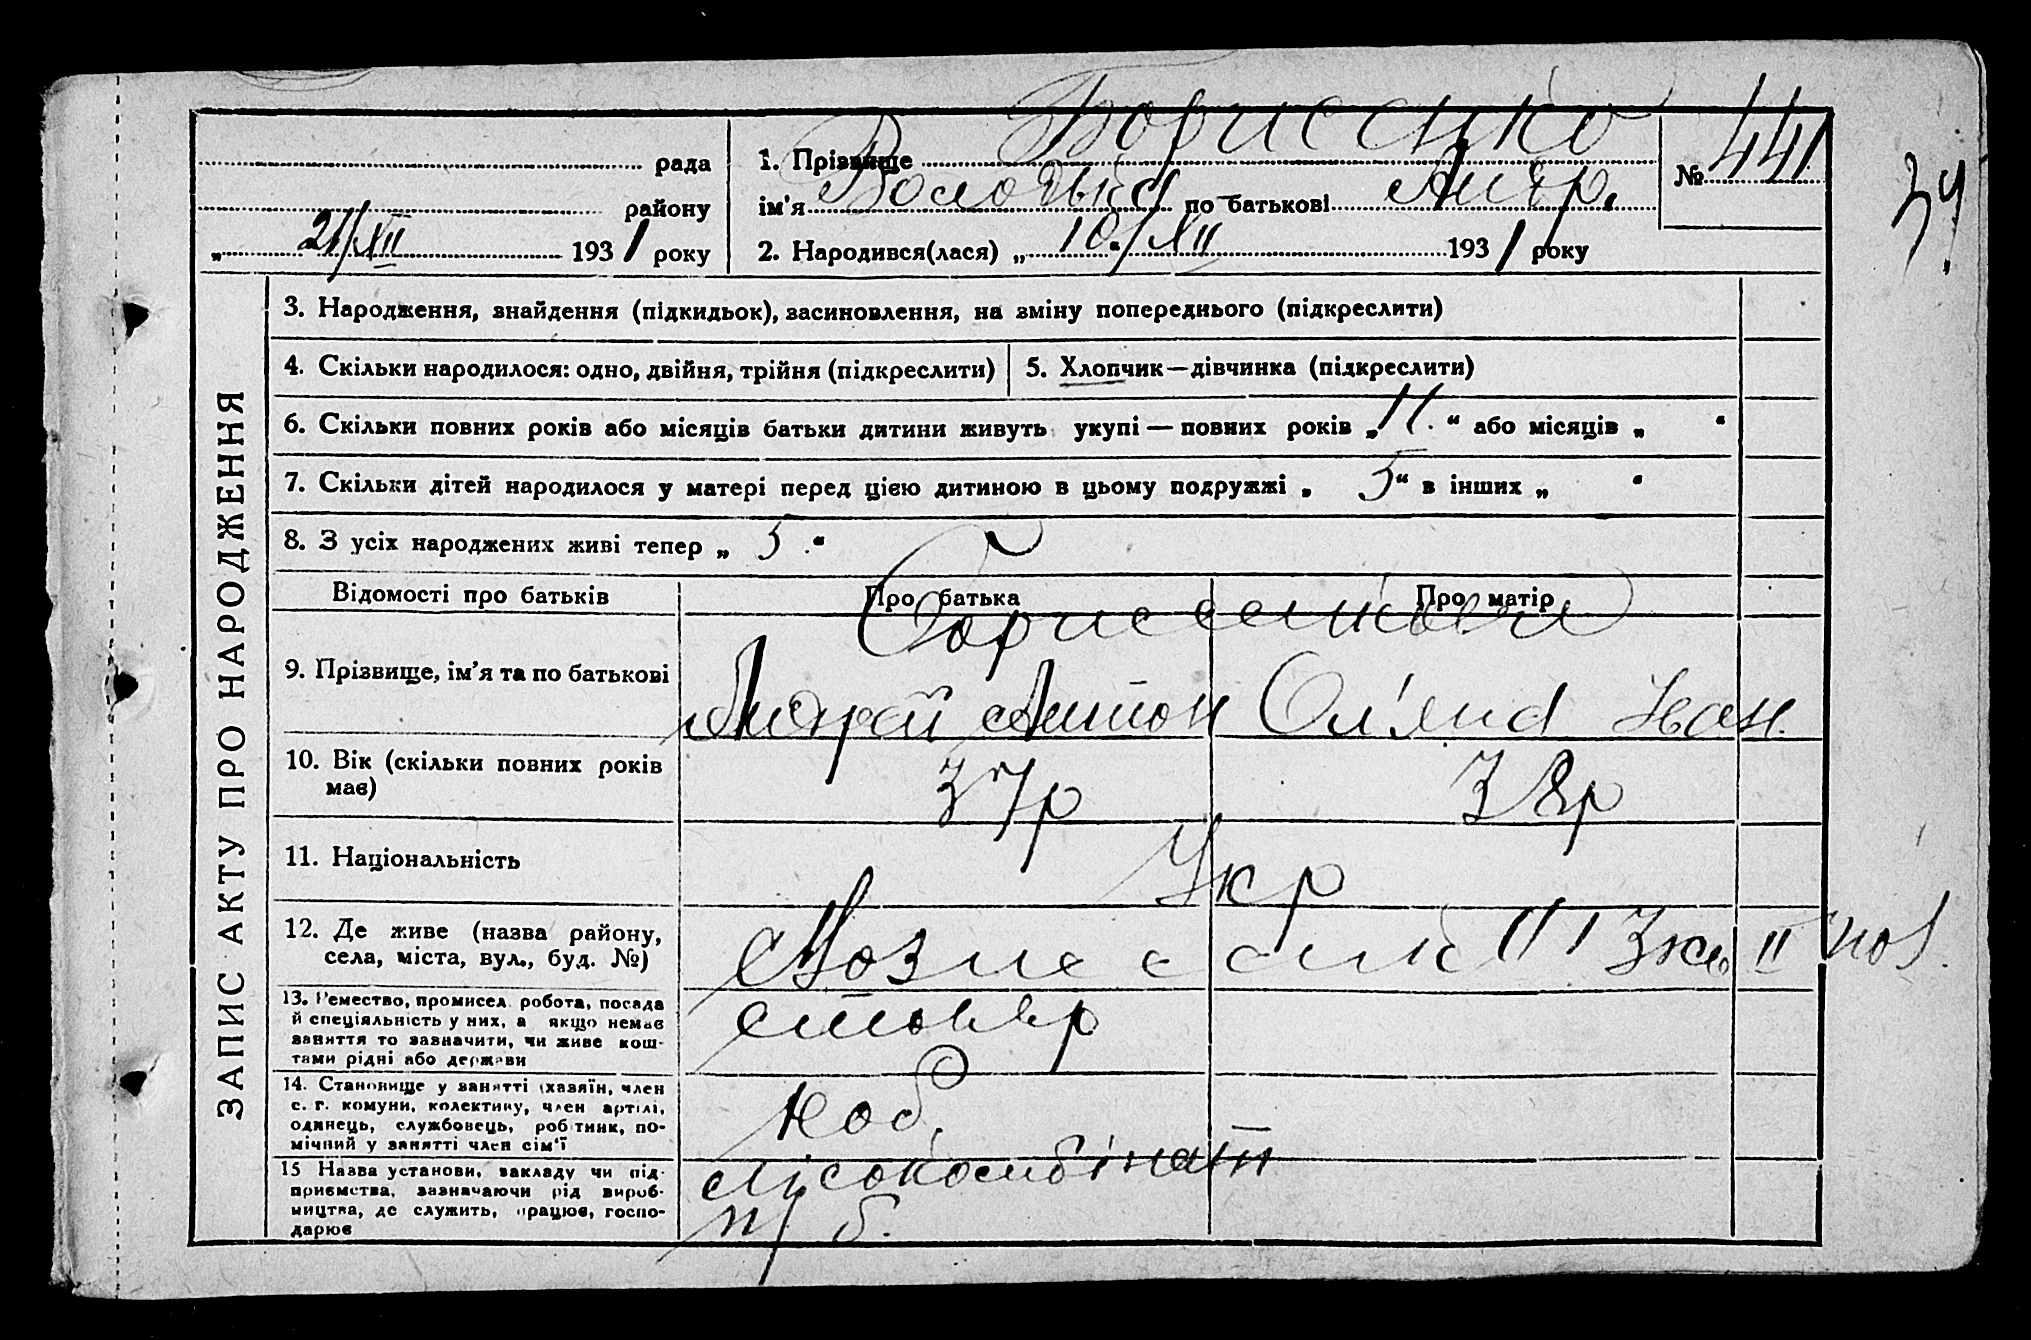 Борисенко
рада 1. Прізвище № 441
39
району ім'я Володька по батькові Андр.
„21/XII 1931 року 2. Народився(лася) „10“/XII 1931 року
ЗАПИС АКТУ ПРО НАРОДЖЕННЯ
3. Народження, знайдення (підкидьок), засиновлення, на зміну попереднього (підкреслити)
4. Скільки народилося: одно, двійня, трійня (підкреслити) 5. Хлопчик—дівчинка (підкреслити)
6. Скільки повних років або місяців батьки дитини живуть укупі — повних років „11.“ або місяців „ “
7. Скільки дітей народилося у матері перед цією дитиною в цьому подружжі „ 5“ в інших „ “
8. З усіх народжених живі тепер „ 5 “
Відомості про батьків Про батька Про матір
Борисенкови
9. Прізвище, ім'я та по батькові Андрей Антон Ол'яна Іван.
10. Вік (скільки повних років 37р 38р
має)
11. Національність Укр
12. Де живе (назва району,
села, міста, вул., буд. №) II пов.
13. Ремество, промисел, робота, посада столяр
й спеціяльність у них, а якщо немає
заняття то зазначити, чи живе кош-
тами рідні або держави
14. Становище у занятті (хазяїн, член
с. г. комуни, колективу, член артілі, роб.
одинець, службовець, робітник, по-
мічний у занятті член сім'ї
15 Назва установи, закладу чи під- Лісокомбінат
приємства, зазначаючи рід вироб-
ництва, де служить, працює, госпо-
дарює